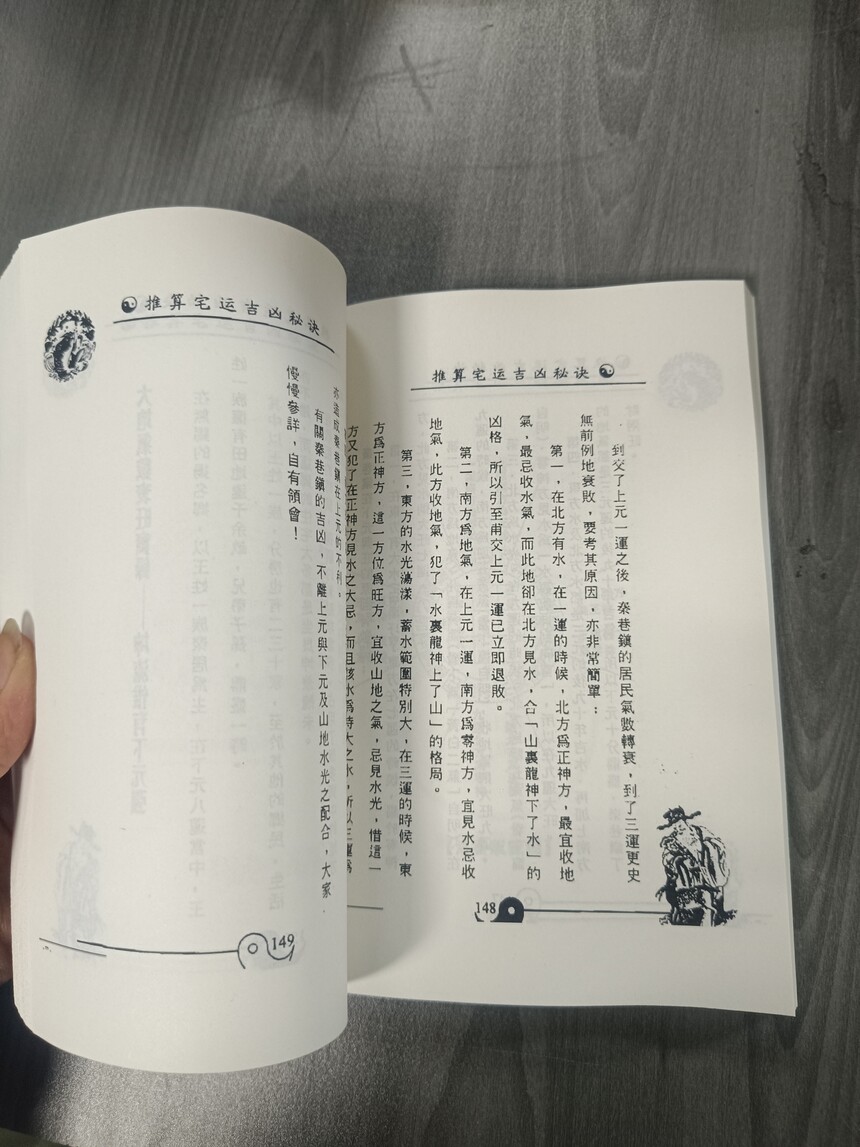 推算宅运吉凶秘诀
到交了上元一運之後，秦巷鎮的居民氣數轉衰，到了三運更史
無前例地衰敗，要考其原因，亦非常簡單：
第一，在北方有水，在一運的時候，北方為正神方，最宜收地
氣，最忌收水氣，而此地卻在北方見水，合「山裏龍神下了水」的
凶格，所以引至甫交上元一運已立即退敗。
第二，南方為地氣，在上元一運，南方為零神方，宜見水忌收
地氣，此方收地氣，犯了「水裏龍神上了山」的格局。
第三，東方的水光蕩漾，蓄水範圍特別大，在三運的時候，東
方為正神方，這一方位為旺方，宜收山地之氣，忌見水光，惜這一
方又犯了在正神方見水之大忌，而且該水為特大之水，所以三運為
148
推算宅运吉凶秘诀
秦巷鎮在上元的不利。
有關秦巷鎮的吉凶，不離上元與下元及山地水光之配合，大家
慢慢參詳，自有領會！
149